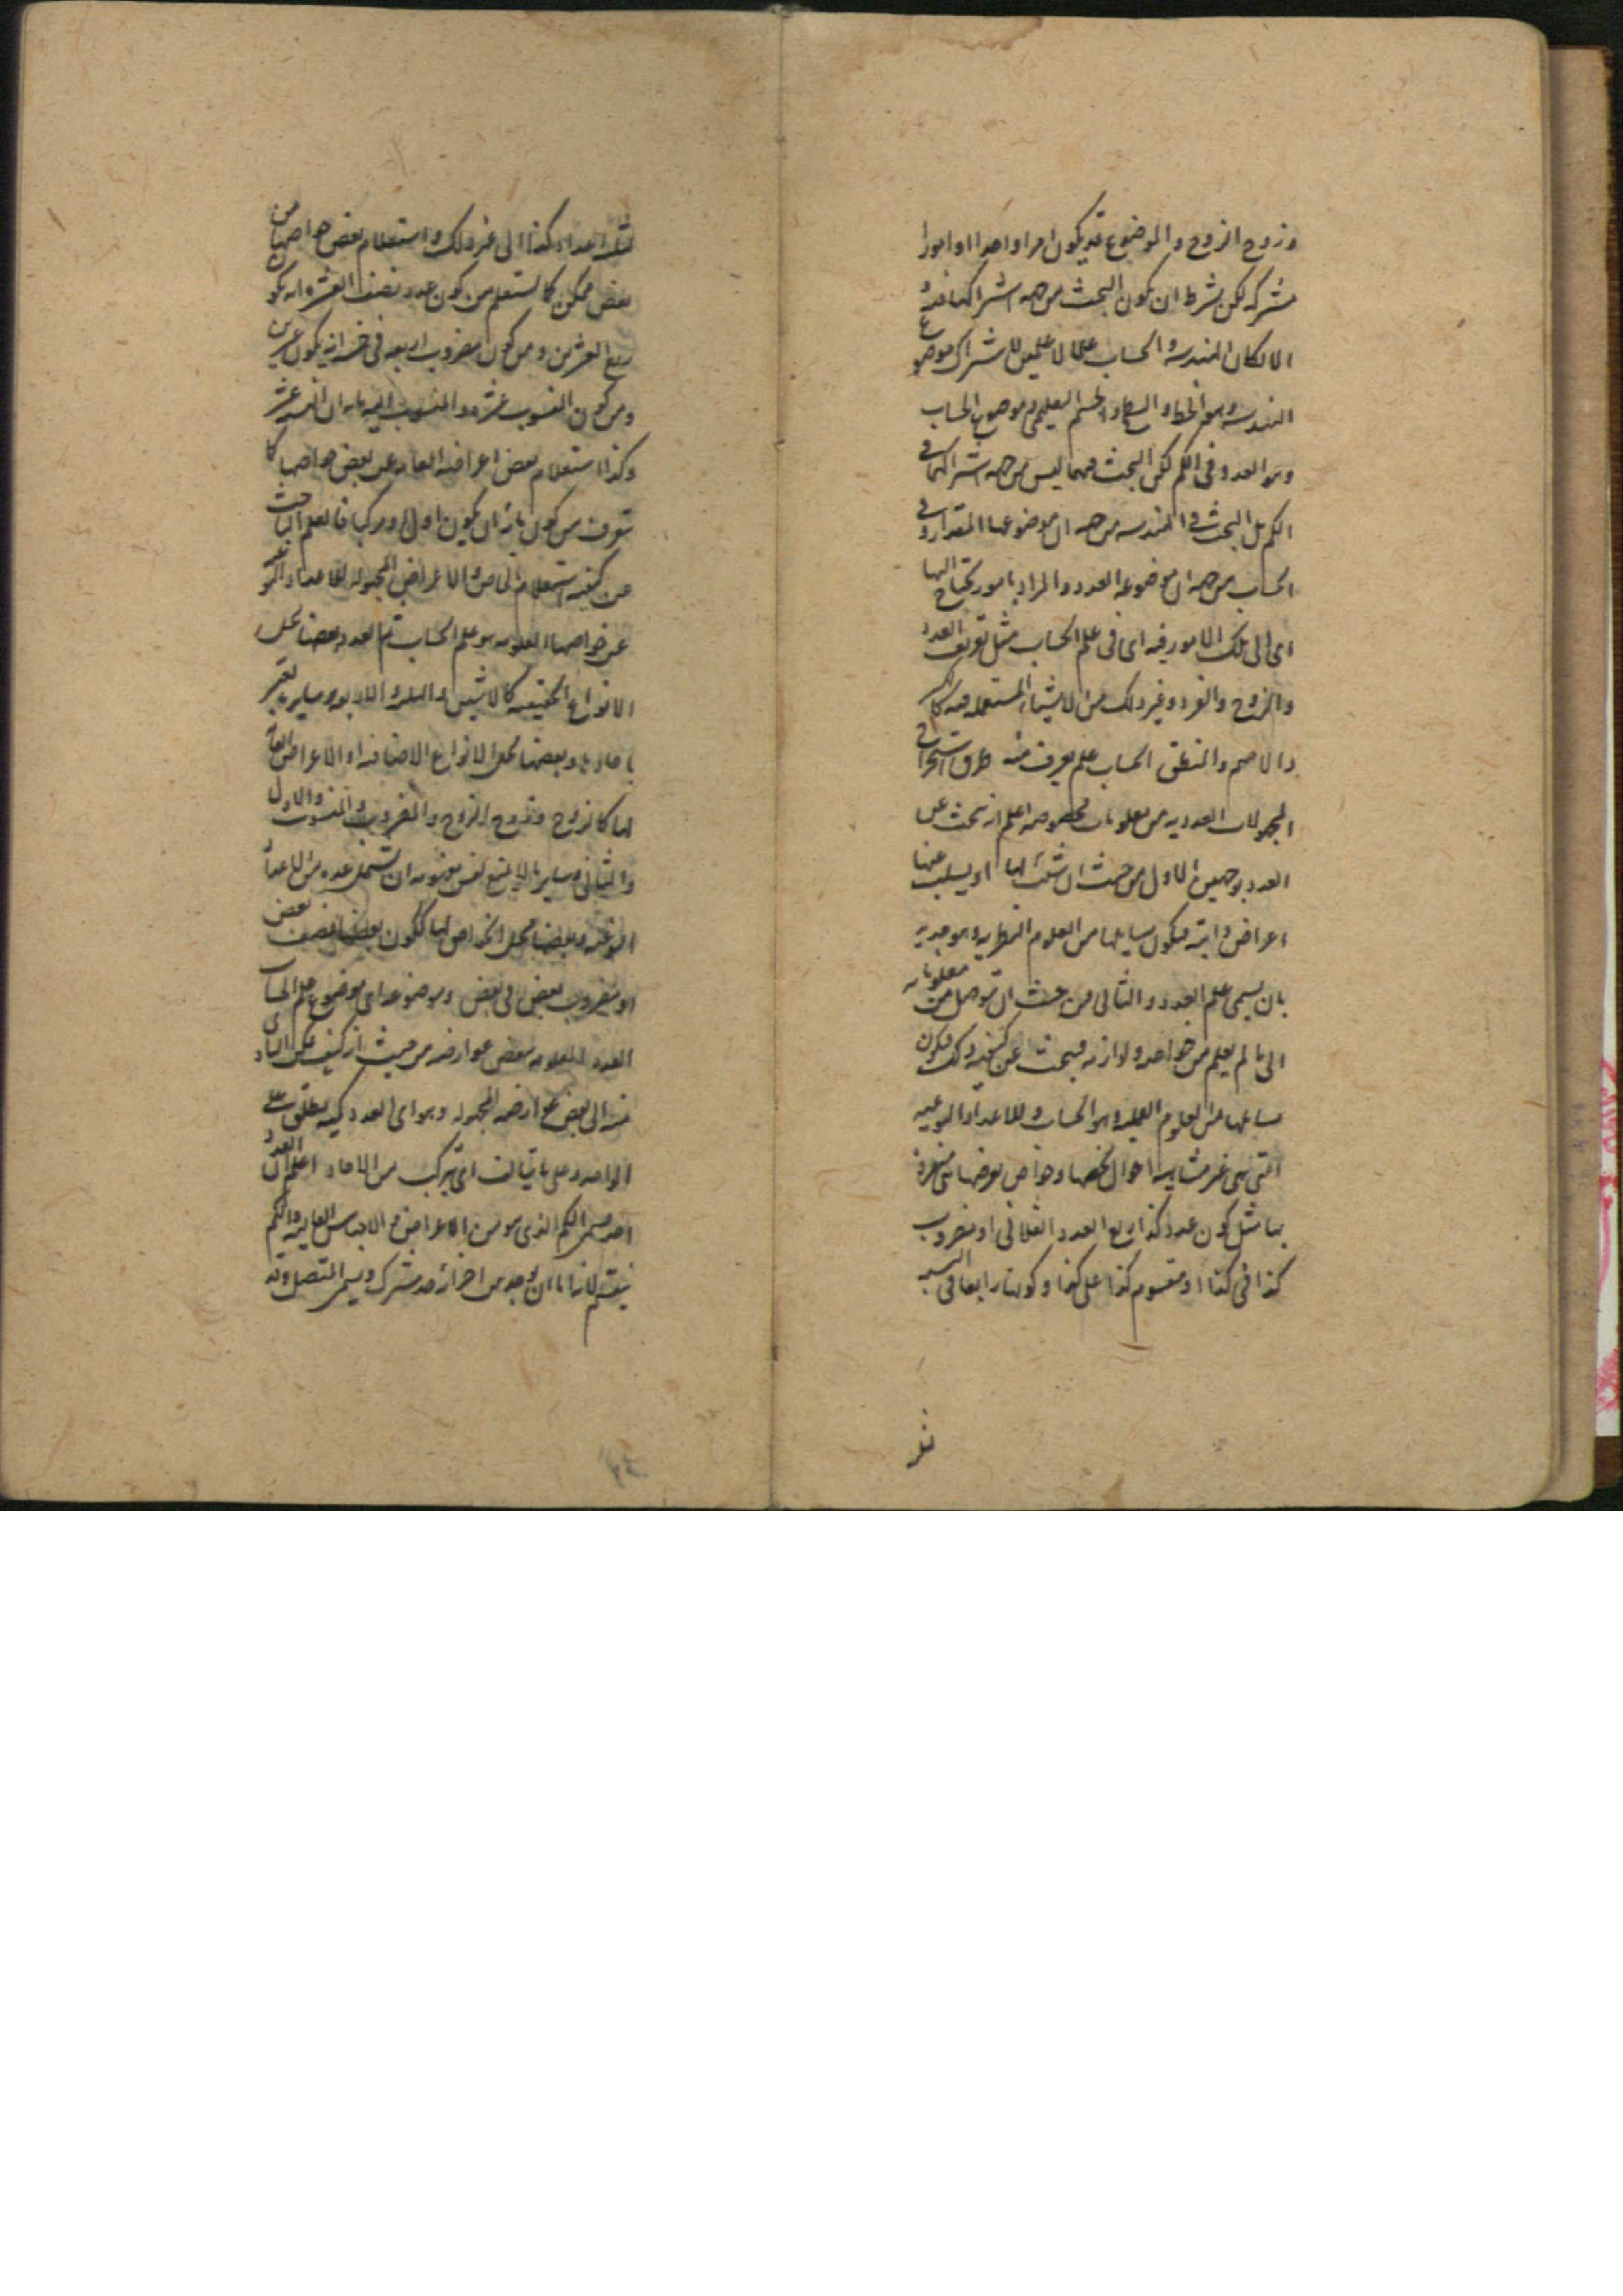 وزوج الزوج والموضوع قد يكون امرا واحدا او امورا
مشتركة لكن بشرط ان يكون البحث من جهة اشتراكها فيه و
الا لكان الهندسة والحساب علما لا علمين لاشتراك موضوع
الهندسة وهو الخط والسطح والجسم التعليمى وموضوع الحساب
وهو العدد فى الكم لكن البحث فيهما ليس من جهة اشتراكهما فى
الكم بل البحث فى الهندسة من جهة ان موضوعها المقدار وفى
الحساب من جهة ان موضوعه العدد والمراد بامور يحتاج اليها
اى الى تلك الامور فيه اى فى علم الحساب مثل تعريف العدد
والزوج والفرد وغير ذلك من الاشياء المستعملة فيه كالكسر
والاصم والمنطق الحساب علم يعرف منه طرق استخراج
المجهولات العددية من معلومات مخصوصة اعلم انه يبحث عن
العدد بوجهين الاول من حيث ان يثبت لها او يسلب عنها
اعراض ذاتية فيكون مسايلها من العلوم النظرية وهو جدير
بان يسمى علم العدد والثانى من حيث ان يتوصل من معلوماته
الى ما لم يعلم من خواصه ولوازمه فيبحث عن كيفية ذلك فيكون
مسايلها من العلوم العملية وهو الحساب وللاعداد النوعية
التى هى غير متناهية احوال تخصها وخواص يعرضها متميزة
بها مثل كون عدد كذا ربع العدد الفلانى او مضروب
كذا فى كذا او مقسوم كذا على كذا وكونها رابعا فى النسبة
لثلثة اعداد كذا الى غير ذلك واستعلام بعض خواصها من
بعض ممكن كما يستعلم من كون عدد نصف العشرة انه يكون
ربع العشرين ومن كون مضروب اربعة فى خمسة انه يكون عشرين
ومن كون المنسوب عشرة والمنسوب اليه مايه ان النسبة عشر
وكذا استعلام بعض اعراضه العامة عن بعض خواصها كما
يتعرف من كون ان يكون اولا ومركبا فالعلم الباحث
عن كيفية استعلام الخواص والاعراض المجهولة للاعداد النوعية
عن خواصها المعلومة هو علم الحساب ثم العدد بعضها محل
الانواع الحقيقية كالاثنين والثلثة والاربعة وسايره يعتبر
باحاده وبعضها محل الانواع الاضافية او الاعراض العامة
لها كالزوج وزوج الزوج والمضروب والمنسوب والاول
والثانى وسايره ما لا يمتنع نفس مفهومه ان يشمل عدة من الاعداد
النوعية وبعضها محل الخواص لها ككون بعضها نصف بعض
او مضروب بعض فى بعض وموضوعه اى موضوع علم الحساب
العدد المعلومة بعض عوارضه من حيث انه كيف يمكن التادى
منه الى بعض عوارضه المجهولة وهو اى العدد كمية يطلق على
الواحد وعلى ما يتالف اى يتركب من الاحاد اعلم ان العدد
احد قسمى الكم الذى هو من الاعراض والاجناس العالية والكم
ينقسم لانه اما ان يوجد بين اجزائه حد مشترك ويسمى المتصل وقد